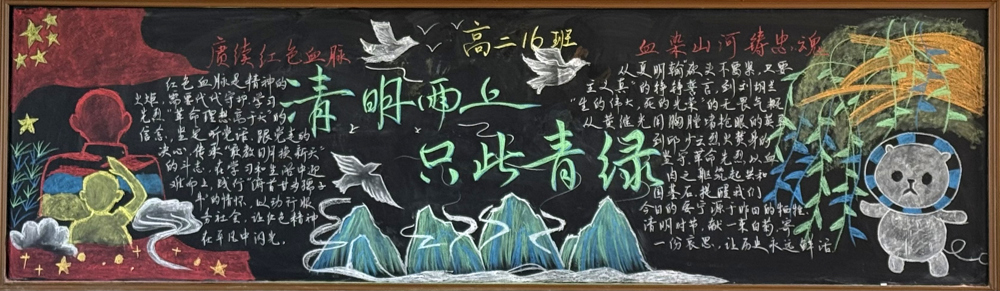 高二16班
赓续红色血脉
红色血脉是精神的
火炬，需要代代守护，学习
先烈“革命理想高于天”的
信念，坚定听党话、跟党走的
决心，传承“敢教日月换新天”
的斗志，在学习和生活中迎
难而上，践行“俯首甘为孺子
牛”的情怀，以功行服
务社会，让红色精神
在平凡中闪光。
清明西上
只此青绿
血染山河铸忠魂
从夏明翰砍头不要紧，只要
主义真”的铮铮誓言，到刘胡兰
“生的伟大，死的光荣”的无畏气概
从黄继光用胸膛堵枪眼的英勇
到邱少云烈火焚身的
坚守，革命先烈以血
肉之躯筑起共和
国基石提醒我们
今日的安宁源于昨日的牺牲
清明时节，献一束白菊，寄
一份哀思，让历史永远鲜活